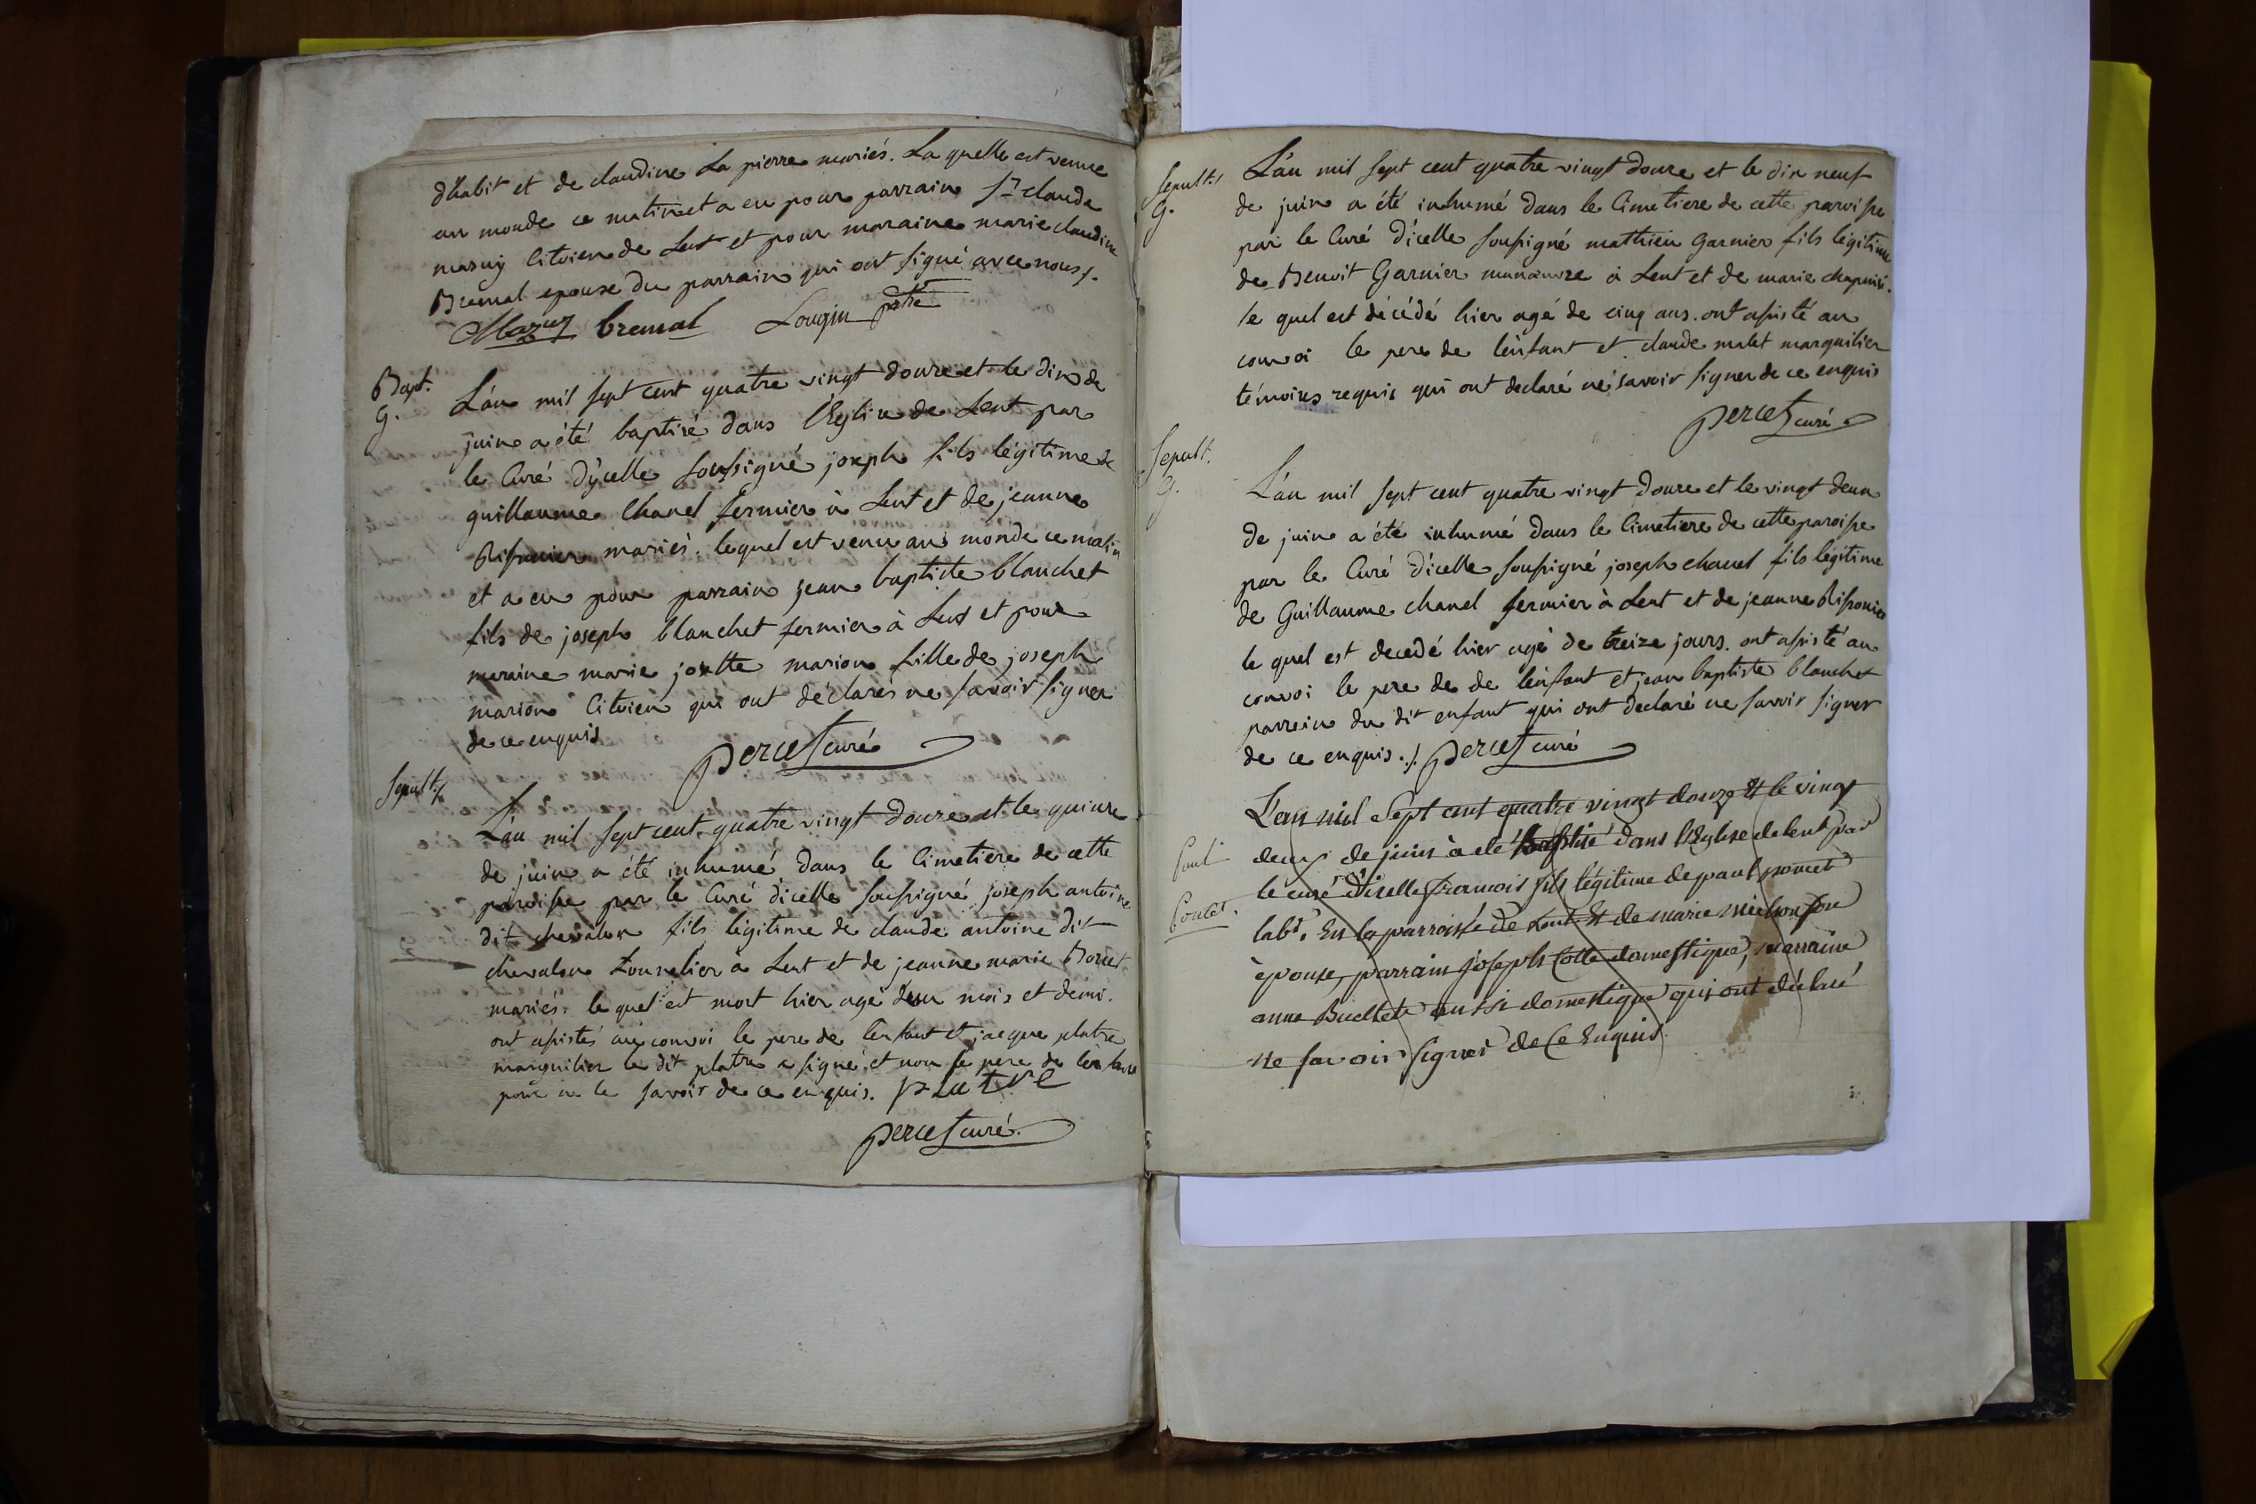 d'habit et de claudine La pierre mariés. La quelle est venue
au monde ce matin et a eu pour parrain Sr claude
mazuy Citoien de Lent et pour maraine marie claudine
Bremal epouse du parrain qui ont signé avec nous.
Mazuy bremal Lougin ptre
Bapt.
G.
L'an mil sept cent quatre vingt douze et le dix de
juin a été baptisé dans l'Eglise de Lent par
le Curé d'ycelle soussigné joseph fils légitime de
guillaume Chanel fermier à Lent et de jeanne
mariés. lequel est venu au monde ce matin
et a eu pour parrain jean baptiste blanchet
fils de joseph blanchet fermier à Lent et pour
maraine marie josette marion fille de joseph
marion Citoien qui ont déclarés ne savoir signer
de ce enquis
percet curé
Sepult.
L'an mil sept cent quatre vingt douze et le quinze
de juin a été inhumé dans le Cimetiere de cette
paroisse par le Curé d'icelle soussigné joseph antoine
dit chevalon fils légitime de claude antoine dit
chevalon tonnelier à Lent et de jeanne marie
mariés. le quel est mort hier agé d'un mois et demi.
ont assistés au convoi le pere de l'enfant et jacque platre
marguilier le dit platre a signé et non le pere de l'enfant
pour ne le savoir de ce enquis. platre
percet curé.
Sepult.
G.
L'an mil sept cent quatre vingt douze et le dix neuf
de juin a été inhumé dans le Cimetiere de cette paroisse
par le Curé d'icelle soussigné mathieu Garnier fils légitime
de Benoit Garnier manœuvre à Lent et de marie chapuis.
le quel est décédé hier agé de cinq ans. ont assisté au
convoi le pere de l'enfant et claude malet marguilier
témoins requis qui ont declaré ne savoir signer de ce enquis
percet curé
Sepult.
G.
L'an mil sept cent quatre vingt douze et le vingt deux
de juin a été inhumé dans le Cimetiere de cette paroisse
par le Curé d'icelle soussigné joseph chanel fils légitime
de Guillaume chanel fermier à Lent et de jeanne
le quel est decedé hier agé de treize jours. ont assisté au
convoi le pere de de l'enfant et jean baptiste blanchet
parrein du dit enfant qui ont declaré ne savoir signer
de ce enquis. percet curé
Paul
Poncet.
L'an mil Sept cent quatre vingt douze Et le vingt
deux de juin à eté baptisé dans l'Eglise de lent par
le curé d'icelle francois fils légitime de paul poncet
labr. En la parroisse de Lent Et de marie michon son
épouse, parrain joseph Cotte domestique, marraine
anne Buchet aussi domestique qui ont déclaré
ne savoir signer de Ce Enquis